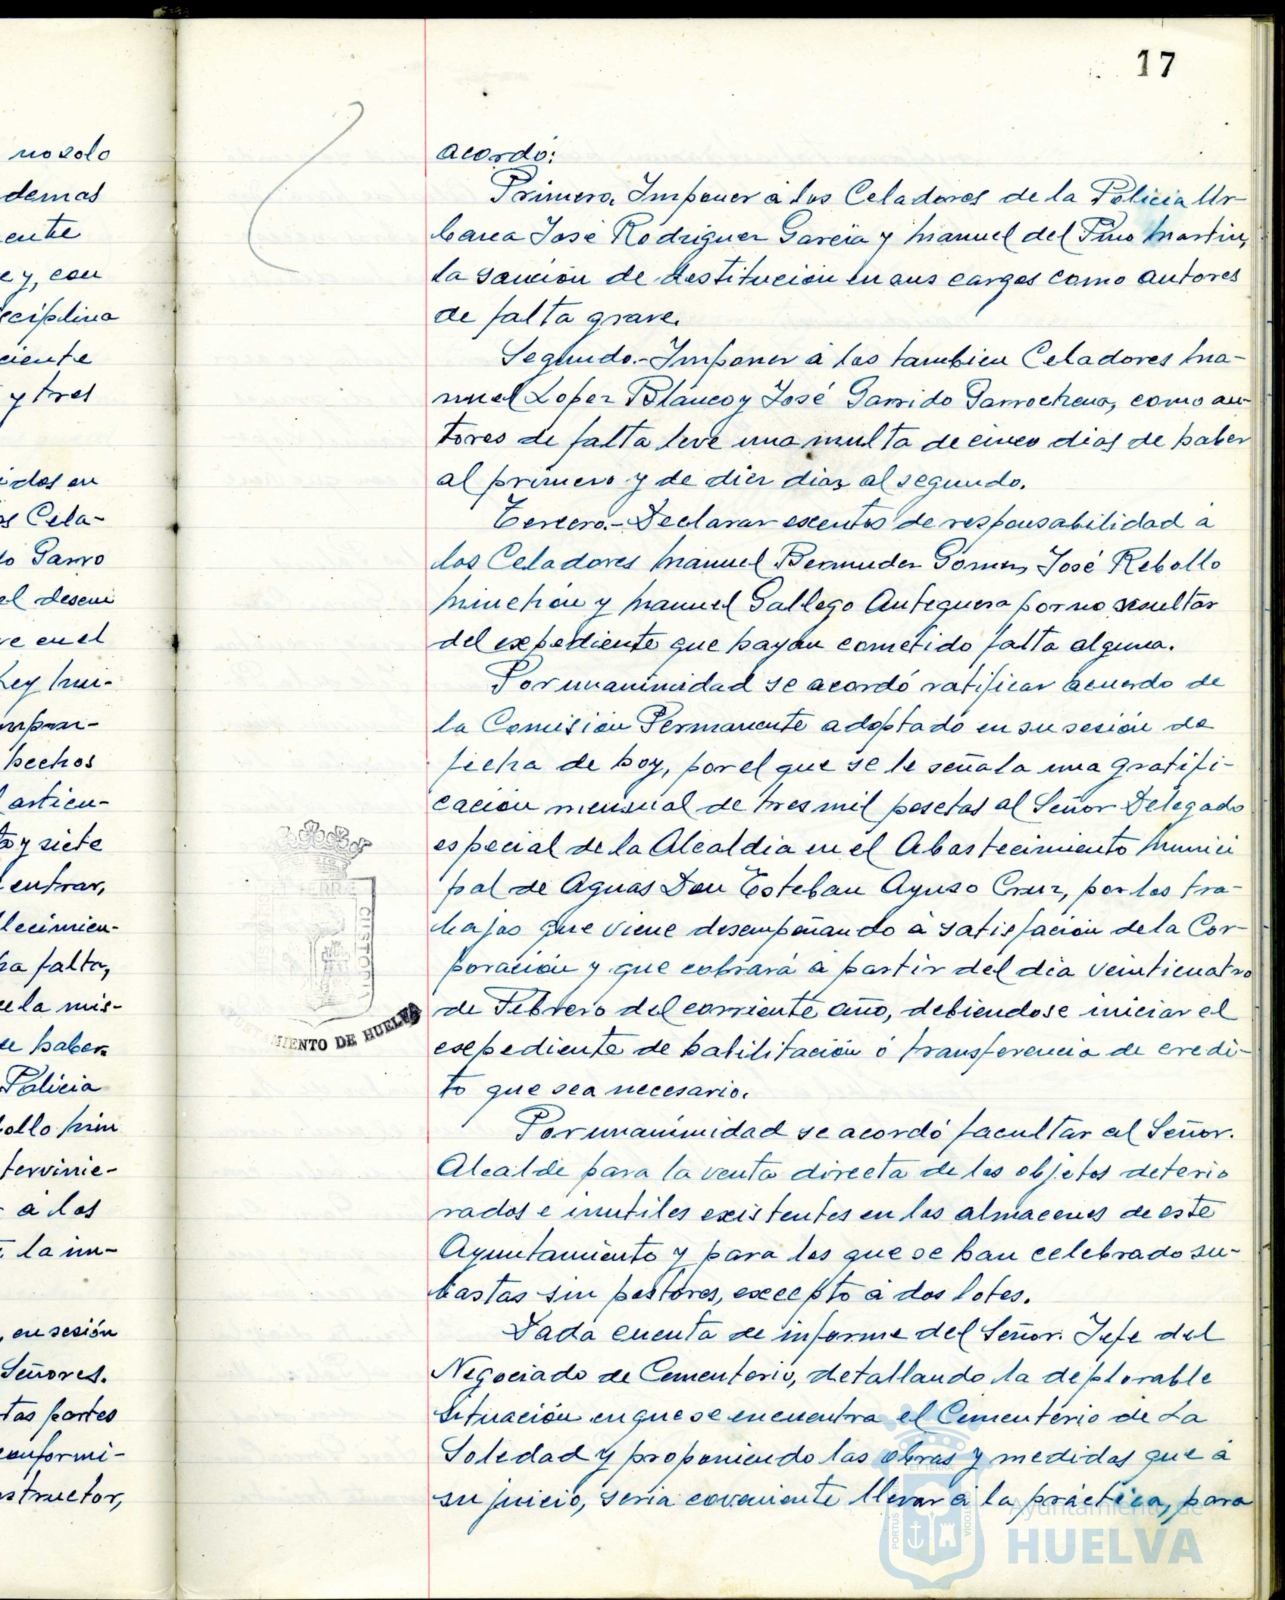 17
no solo
demas
ente
e y, con
sciplina
ciente
y tres
idos en
os Cela-
do Garro
el desem
ve en el
Ley Mu-
hechos
l articu-
to y siete
entrar,
lecimien-
ha falta,
de la mis-
de haber.
Policia
bollo Min
tervinie-
r á los
la im-
, en sesión
Señores.
tas partes
conformi-
nstructor,
acordó:
Primero. Imponer á los Celadores de la Policia Ur-
bana José Rodriguez Garcia y Manuel del Pino Martin,
la sanción de destitución en sus cargos como autores
de falta grave.
Segundo.- Imponer á los tambien Celadores Ma-
nuel Lopez Blanco y José Garrido Garrochena, como au-
tores de falta leve una multa de cinco dias de haber
al primero y de diez dias al segundo.
Tercero.- Declarar exentos de responsabilidad á
los Celadores Manuel Bermudez Gomez, José Rebollo
Minchón y Manuel Gallego Antequera por no resultar
del expediente que hayan cometido falta alguna.
Por unanimidad se acordó ratificar acuerdo de
la Comisión Permanente adoptado en su sesión de
fecha de hoy, por el que se le señala una gratifi-
cación mensual de tres mil pesetas al Señor Delegado
especial de la Alcaldia en el Abastecimiento Munici
pal de Aguas Don Esteban Ayuso Cruz, por los tra-
bajos que viene desempeñando á satisfación de la Cor-
poración y que cobrará á partir del dia veinticuatro
de Febrero del corriente año, debiendose iniciar el
expediente de habilitación ó transferencia de credi-
to que sea necesario.
Por unanimidad se acordó facultar al Señor.
Alcalde para la venta directa de los objetos deterio
rados e inutiles existentes en los almacenes de este
Ayuntamiento y para los que se han celebrado su-
bastas sin postores, excepto á dos lotes.
Dada cuenta de informe del Señor. Jefe del
Negociado de Cementerio, detallando la deplorable
situación en que se encuentra el Cementerio de La
Soledad y proponiendo las obras y medidas que á
su juicio, seria coveniente llevar á la práctica, para
MIENTO DE HUELVA
Ayuntamiento de
HUELVA